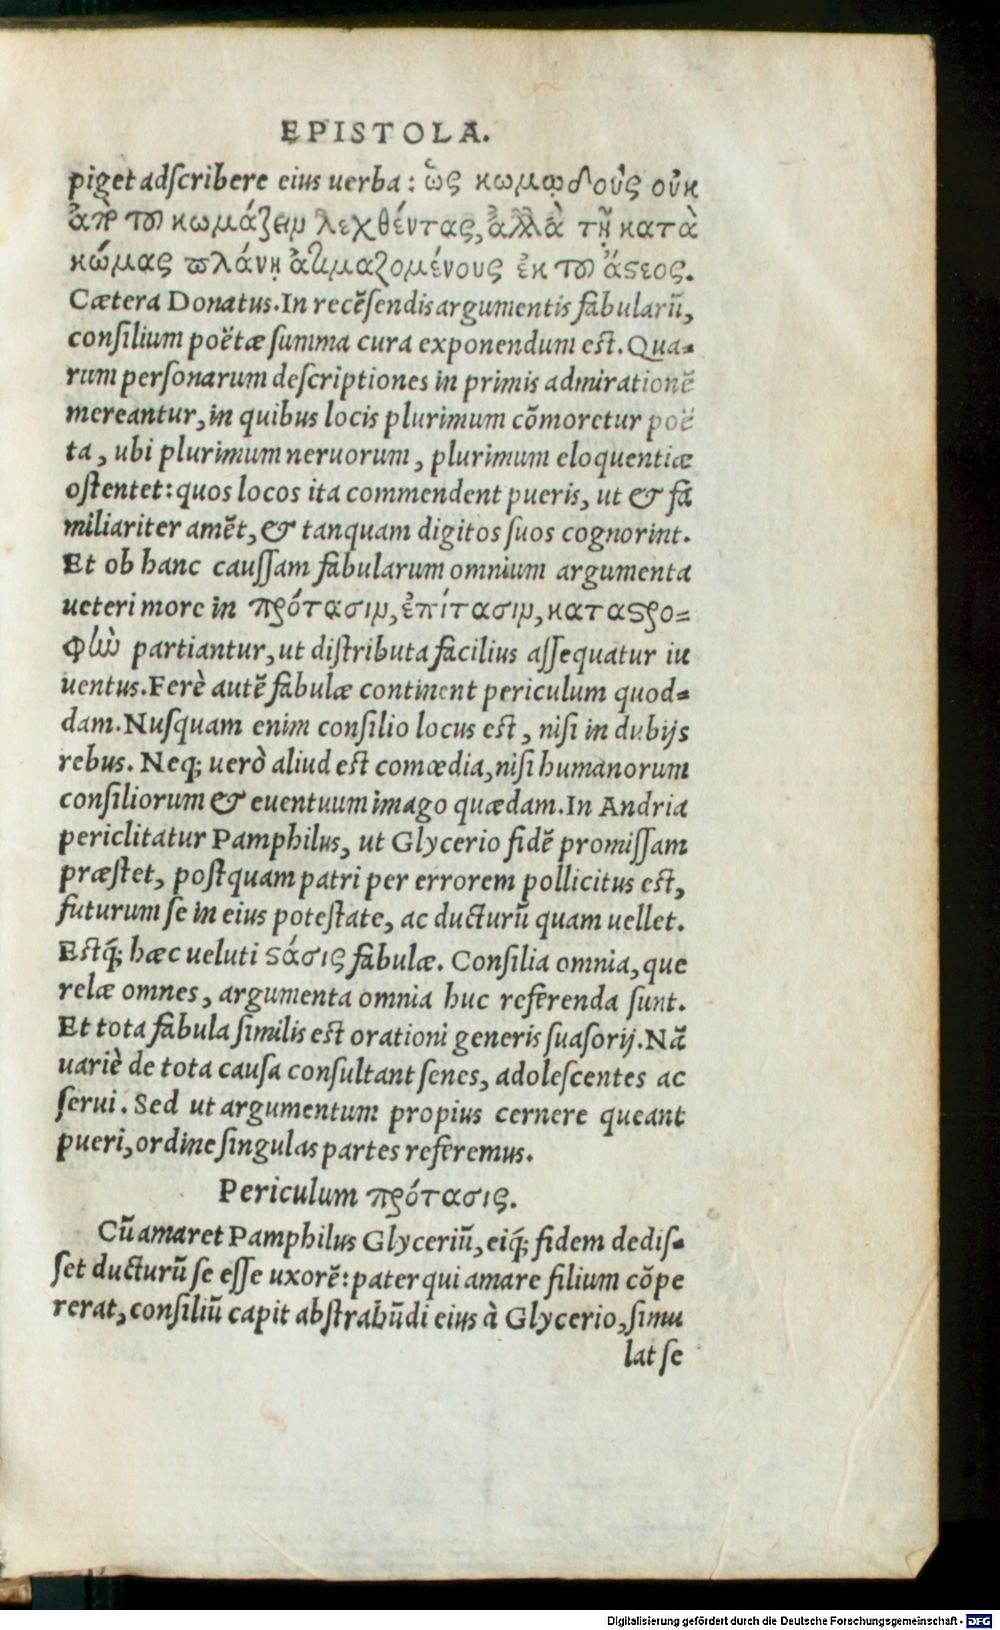 EPISTOLA.
piget adſcribere eius uerba: ὡς κωμῳδοὺς οὐκ
ἀπὸ τοῦ κωμάζειν λεχθέντας, ἀλλὰ τῇ κατὰ
κώμας πλάνῃ ἀτιμαζομένους ἐκ τοῦ ἄϛεος.
Cætera Donatus. In recēſendis argumentis fabularū,
conſilium poëtæ ſumma cura exponendum eſt. Qua-
rum perſonarum deſcriptiones in primis admirationē
mereantur, in quibus locis plurimum cōmoretur poë
ta, ubi plurimum neruorum, plurimum eloquentiæ
oſtentet: quos locos ita commendent pueris, ut & fa
miliariter amēt, & tanquam digitos ſuos cognorint.
Et ob hanc cauſſam fabularum omnium argumenta
ueteri more in πρότασιν, ἐπίτασιν, καταϛρο-
φὴν partiantur, ut diſtributa facilius aſſequatur iu
uentus. Ferè autē fabulæ continent periculum quod-
dam. Nuſquam enim conſilio locus eſt, niſi in dubijs
rebus. Neq; uerò aliud eſt comœdia, niſi humanorum
conſiliorum & euentuum imago quædam. In Andria
periclitatur Pamphilus, ut Glycerio fidē promiſſam
præſtet, poſtquam patri per errorem pollicitus eſt,
futurum ſe in eius poteſtate, ac ducturū quam uellet.
Eſtq́; hæc ueluti ϛάσις fabulæ. Conſilia omnia, que
relæ omnes, argumenta omnia huc referenda ſunt.
Et tota fabula ſimilis eſt orationi generis ſuaſorij. Nā
uariè de tota cauſa conſultant ſenes, adoleſcentes ac
ſerui. Sed ut argumentum propius cernere queant
pueri, ordine ſingulas partes referemus.
Periculum πρότασις.
Cū amaret Pamphilus Glyceriū, eiq́; fidem dediſ-
ſet ducturū ſe eſſe uxorē: pater qui amare filium cōpe
rerat, conſiliū capit abſtrahēdi eius à Glycerio, ſimu
lat ſe
Digitalisierung gefördert durch die Deutsche Forschungsgemeinschaft - DFG